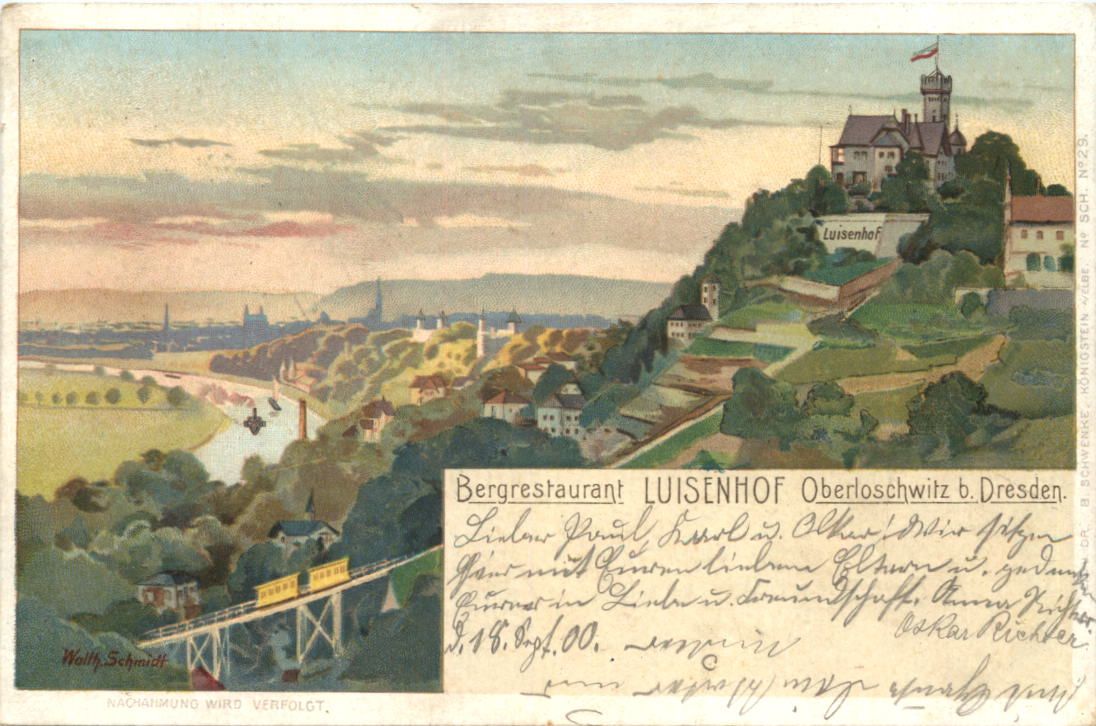 Luisenhof
Bergrestaurant LUISENHOF Oberloschwitz b. Dresden.
Lieber Paul, Karl u. Oskar! Wir sitzen
hier mit Euren lieben Eltern u. gedenken
Eurer in Liebe u. Freundschaft. Anna Richter.
d. 18. Sept. 00.
Oskar Richter
Walth. Schmidt
NACHAHMUNG WIRD VERFOLGT.
DR. B. SCHWENKE, KÖNIGSTEIN A/ELBE. No SCH. No 29.